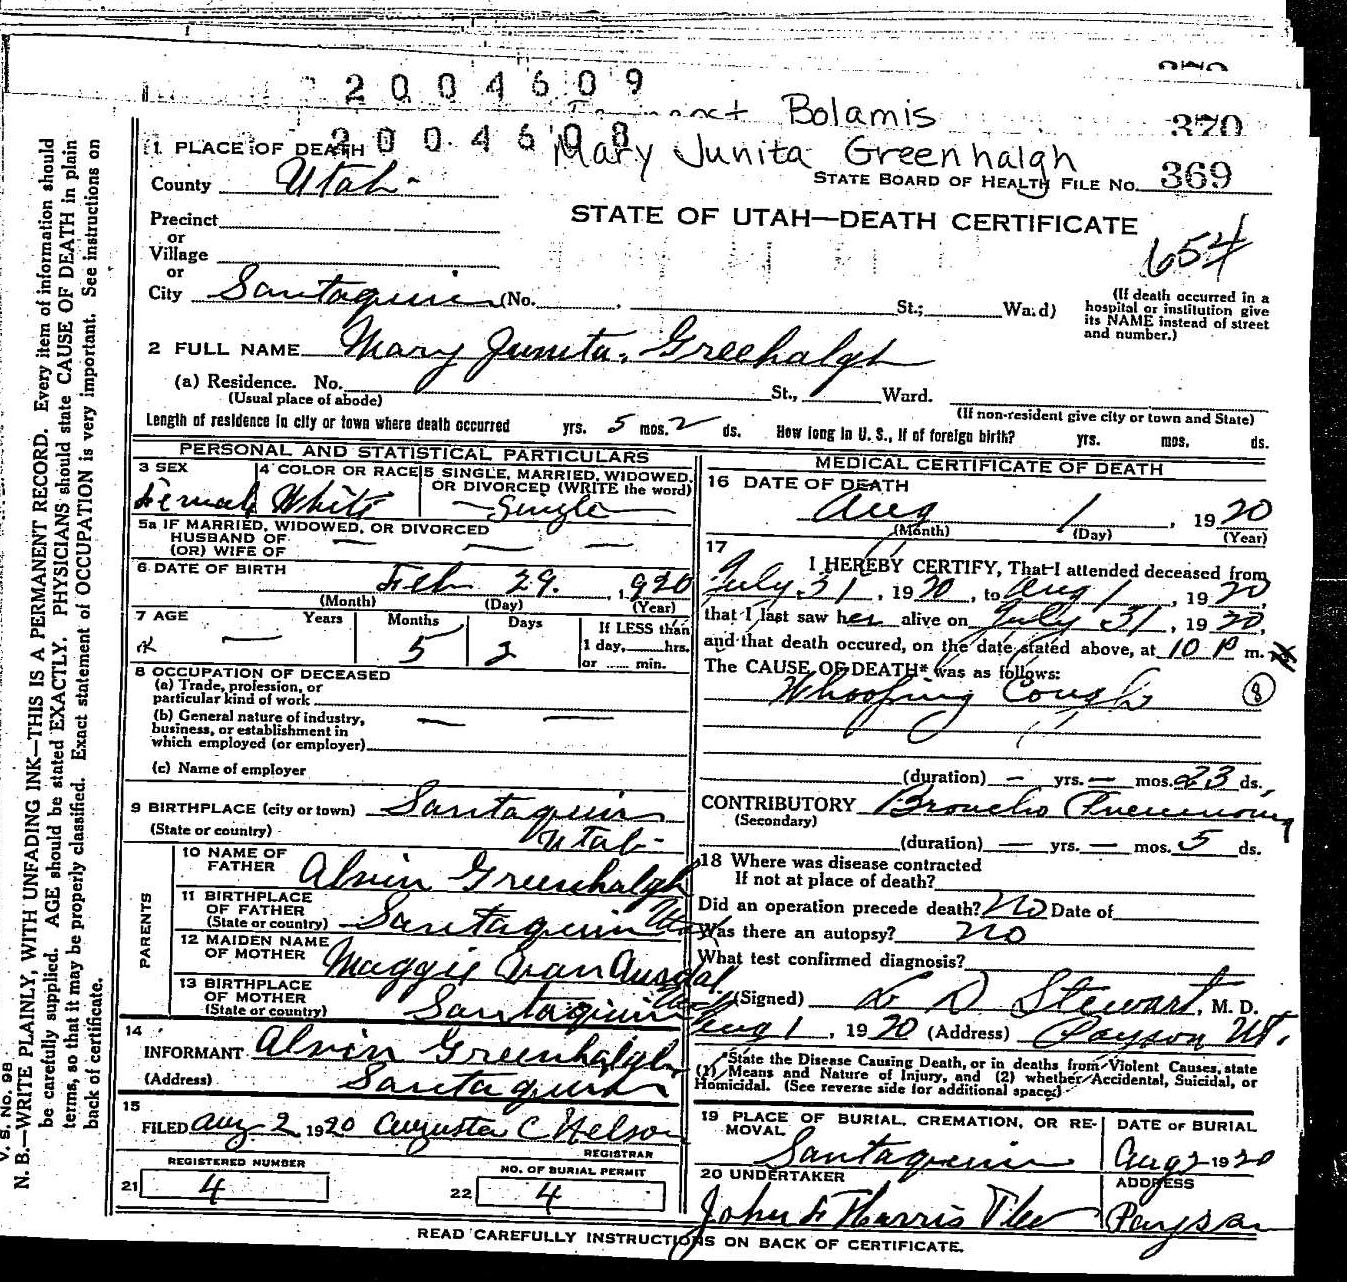 2004609
Bolamis
370
2004608
Mary Junita Greenhalgh
1 PLACE OF DEATH
STATE BOARD OF HEALTH FILE No. 369
County Utah
STATE OF UTAH—DEATH CERTIFICATE
654
Precinct
or
Village
or
City Santaquin (No. , St.; Ward)
(If death occurred in a hospital or institution give its NAME instead of street and number.)
2 FULL NAME Mary Junita Greehalgh
(a) Residence. No. St., Ward.
(Usual place of abode) (If non-resident give city or town and State)
Length of residence in city or town where death occurred yrs. 5 mos. 2 ds. How long in U. S., if of foreign birth? yrs. mos. ds.
PERSONAL AND STATISTICAL PARTICULARS
3 SEX Female
4 COLOR OR RACE White
5 SINGLE, MARRIED, WIDOWED, OR DIVORCED (WRITE the word) Single
5a IF MARRIED, WIDOWED, OR DIVORCED
HUSBAND OF
(OR) WIFE OF
6 DATE OF BIRTH Feb 29. 1920
(Month) (Day) (Year)
7 AGE Years Months Days If LESS than
5 2 1 day, hrs.
or min.
8 OCCUPATION OF DECEASED
(a) Trade, profession, or
particular kind of work
(b) General nature of industry,
business, or establishment in
which employed (or employer)
(c) Name of employer
9 BIRTHPLACE (city or town) Santaquin
(State or country) Utah
PARENTS
10 NAME OF FATHER Alvin Greenhalgh
11 BIRTHPLACE OF FATHER (State or country) Santaquin Utah
12 MAIDEN NAME OF MOTHER Maggie Van Ausdal
13 BIRTHPLACE OF MOTHER (State or country) Santaquin Utah
14
INFORMANT Alvin Greenhalgh
(Address) Santaquin
15
FILED Aug 2 1920 Augusta C Nelson
REGISTRAR
REGISTERED NUMBER
21 4
NO. OF BURIAL PERMIT
22 4
MEDICAL CERTIFICATE OF DEATH
16 DATE OF DEATH
Aug 1, 1920
(Month) (Day) (Year)
17
I HEREBY CERTIFY, That I attended deceased from
July 31, 1920, to Aug 1, 1920,
that I last saw her alive on July 31, 1920,
and that death occured, on the date stated above, at 10 P m.
The CAUSE OF DEATH* was as follows:
Whooping Cough
8
(duration) — yrs. — mos. 23 ds.
CONTRIBUTORY Broncho Pneumonia
(Secondary)
(duration) — yrs. — mos. 5 ds.
18 Where was disease contracted
If not at place of death?
Did an operation precede death? No Date of
Was there an autopsy? No
What test confirmed diagnosis?
(Signed) L D Stewart, M. D.
Aug 1, 1920 (Address) Payson Ut.
*State the Disease Causing Death, or in deaths from Violent Causes, state
(1) Means and Nature of Injury, and (2) whether Accidental, Suicidal, or
Homicidal. (See reverse side for additional space)
19 PLACE OF BURIAL, CREMATION, OR REMOVAL Santaquin
DATE OF BURIAL
Aug 2 1920
20 UNDERTAKER
ADDRESS
Payson
READ CAREFULLY INSTRUCTIONS ON BACK OF CERTIFICATE.
V. S. No. 98
N. B.—WRITE PLAINLY, WITH UNFADING INK—THIS IS A PERMANENT RECORD. Every item of information should
be carefully supplied. AGE should be stated EXACTLY. PHYSICIANS should state CAUSE OF DEATH in plain
terms, so that it may be properly classified. Exact statement of OCCUPATION is very important. See instructions on
back of certificate.